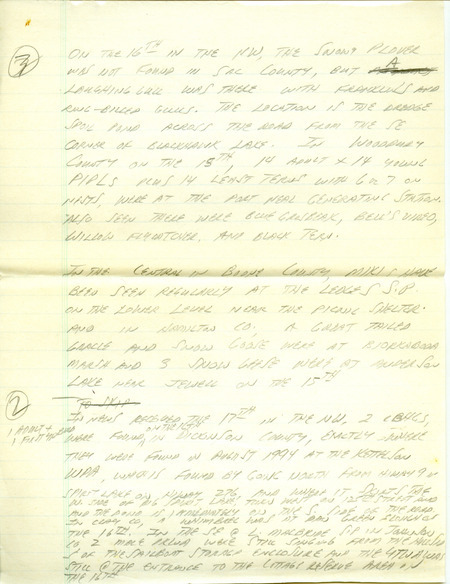 3
ON THE 16TH IN THE NW, THE SNOWY PLOVER
WAS NOT FOUND IN SAC COUNTY, BUT A
LAUGHING GULL WAS THERE WITH FRANKLIN'S AND
RING-BILLED GULLS. THE LOCATION IS THE DREDGE
SPOIL POND ACROSS THE ROAD FROM THE SE
CORNER OF BLACKHAWK LAKE. IN WOODBURY
COUNTY ON THE 15TH, 14 ADULT & 14 YOUNG
PIPLS PLUS 14 LEAST TERNS WITH 6 OR 7 ON
NESTS, WERE AT THE PORT NEAL GENERATING STATION.
ALSO SEEN THERE WERE BLUE GROSBEAK, BELL'S VIREO,
WILLOW FLYCATCHER, AND BLACK TERN.
IN THE CENTRAL IN BOONE COUNTY, MIKIS HAVE
BEEN SEEN REGULARLY AT THE LEDGES S.P.
ON THE LOWER LEVEL NEAR THE PICNIC SHELTER.
AND IN HAMILTON CO, A GREAT TAILED
GRACKLE AND SNOW GOOSE WERE AT BJORKBODA
MARSH AND 3 SNOW GEESE WERE AT ANDERSON
LAKE NEAR JEWELL ON THE 15TH
2
IN NEWS RECEIVED THE 17TH IN THE NW, 2
1 ADULT &
WERE FOUND IN DICKINSON COUNTY, EXACTLY WHERE
THEY WERE FOUND IN AUGUST 1994 AT THE KETTLESON
WPA, WHICH IS FOUND BY GOING NORTH FROM HIWAY 9
SPIRIT LAKE ON HIWAY 276 AND WHEN IT
AND THE POND IS IMMEDIATELY ON THE S SIDE OF THE ROAD.
IN CLAY CO, A WHIMBREL WAS AT DAN GREEN SLOUGH ON
THE 16TH. IN THE SE
2 MALE WERE STILL SINGING FROM THE
OF THE SAILBOAT STORAGE ENCLOSURE AND THE YTWA WAS
STILL @ THE ENTRANCE TO THE COTTAGE RESERVE AREA ON
THE 16TH